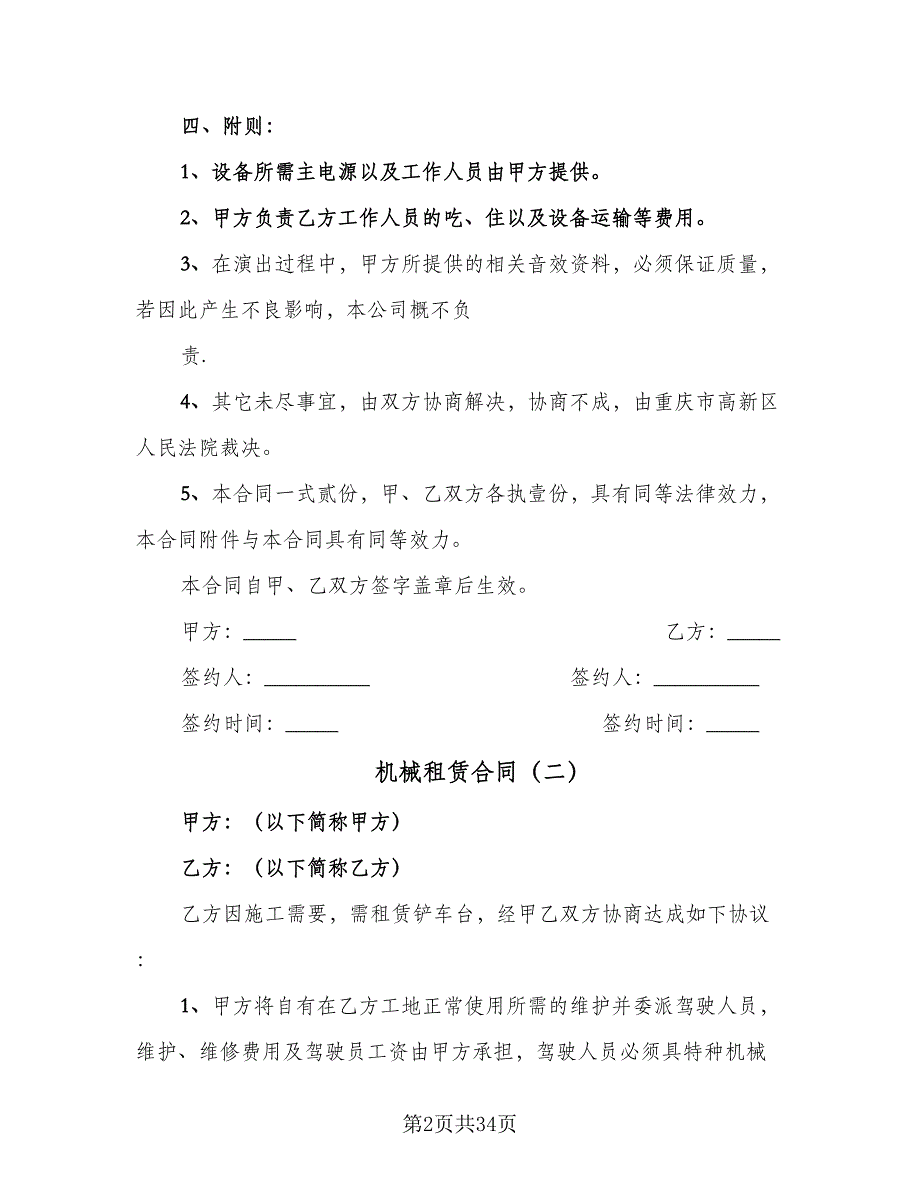 四、附则：
1、设备所需主电源以及工作人员由甲方提供。
2、甲方负责乙方工作人员的吃、住以及设备运输等费用。
3、在演出过程中，甲方所提供的相关音效资料，必须保证质量，
若因此产生不良影响，本公司概不负
责.
4、其它未尽事宜，由双方协商解决，协商不成，由重庆市高新区
人民法院裁决。
5、本合同一式贰份，甲、乙双方各执壹份，具有同等法律效力，
本合同附件与本合同具有同等效力。
本合同自甲、乙双方签字盖章后生效。
甲方：_____ 乙方：_____
签约人：__________ 签约人：__________
签约时间：_____ 签约时间：_____
机械租赁合同（二）
甲方：（以下简称甲方）
乙方：（以下简称乙方）
乙方因施工需要，需租赁铲车台，经甲乙双方协商达成如下协议
：
1、甲方将自有在乙方工地正常使用所需的维护并委派驾驶人员，
维护、维修费用及驾驶员工资由甲方承担，驾驶人员必须具特种机械
第2页共34页